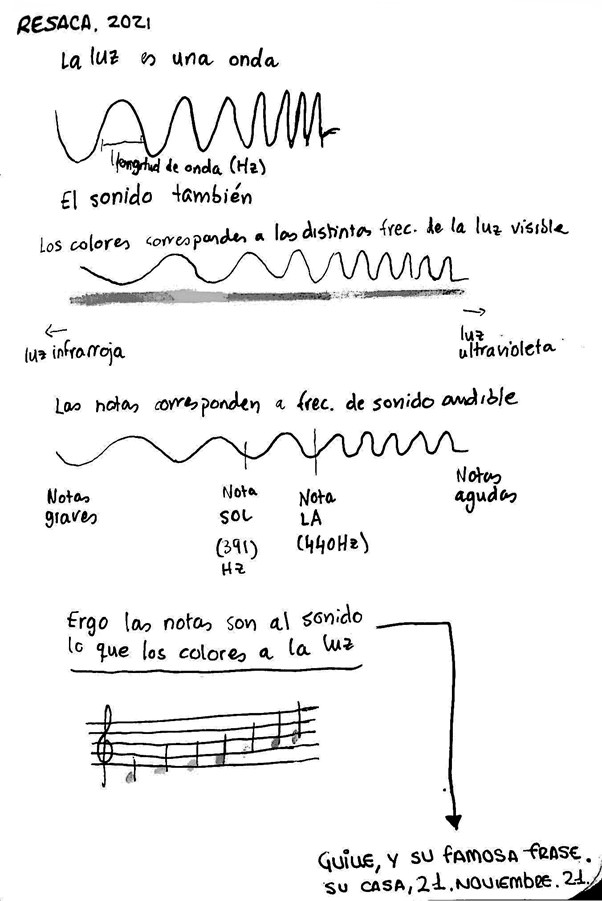 RESACA, 2021
La luz es una onda
longitud de onda (Hz)
El sonido también
Los colores corresponden a las distintas frec. de la luz visible
←
luz infrarroja
→
luz
ultravioleta
Las notas corresponden a frec. de sonido audible
Notas
graves
Nota
SOL
(391)
HZ
Nota
LA
(440Hz)
Notas
agudas
Ergo las notas son al sonido
lo que los colores a la luz
GUIUE, Y SU FAMOSA FRASE.
SU CASA, 21. NOVIEMBRE. 21.